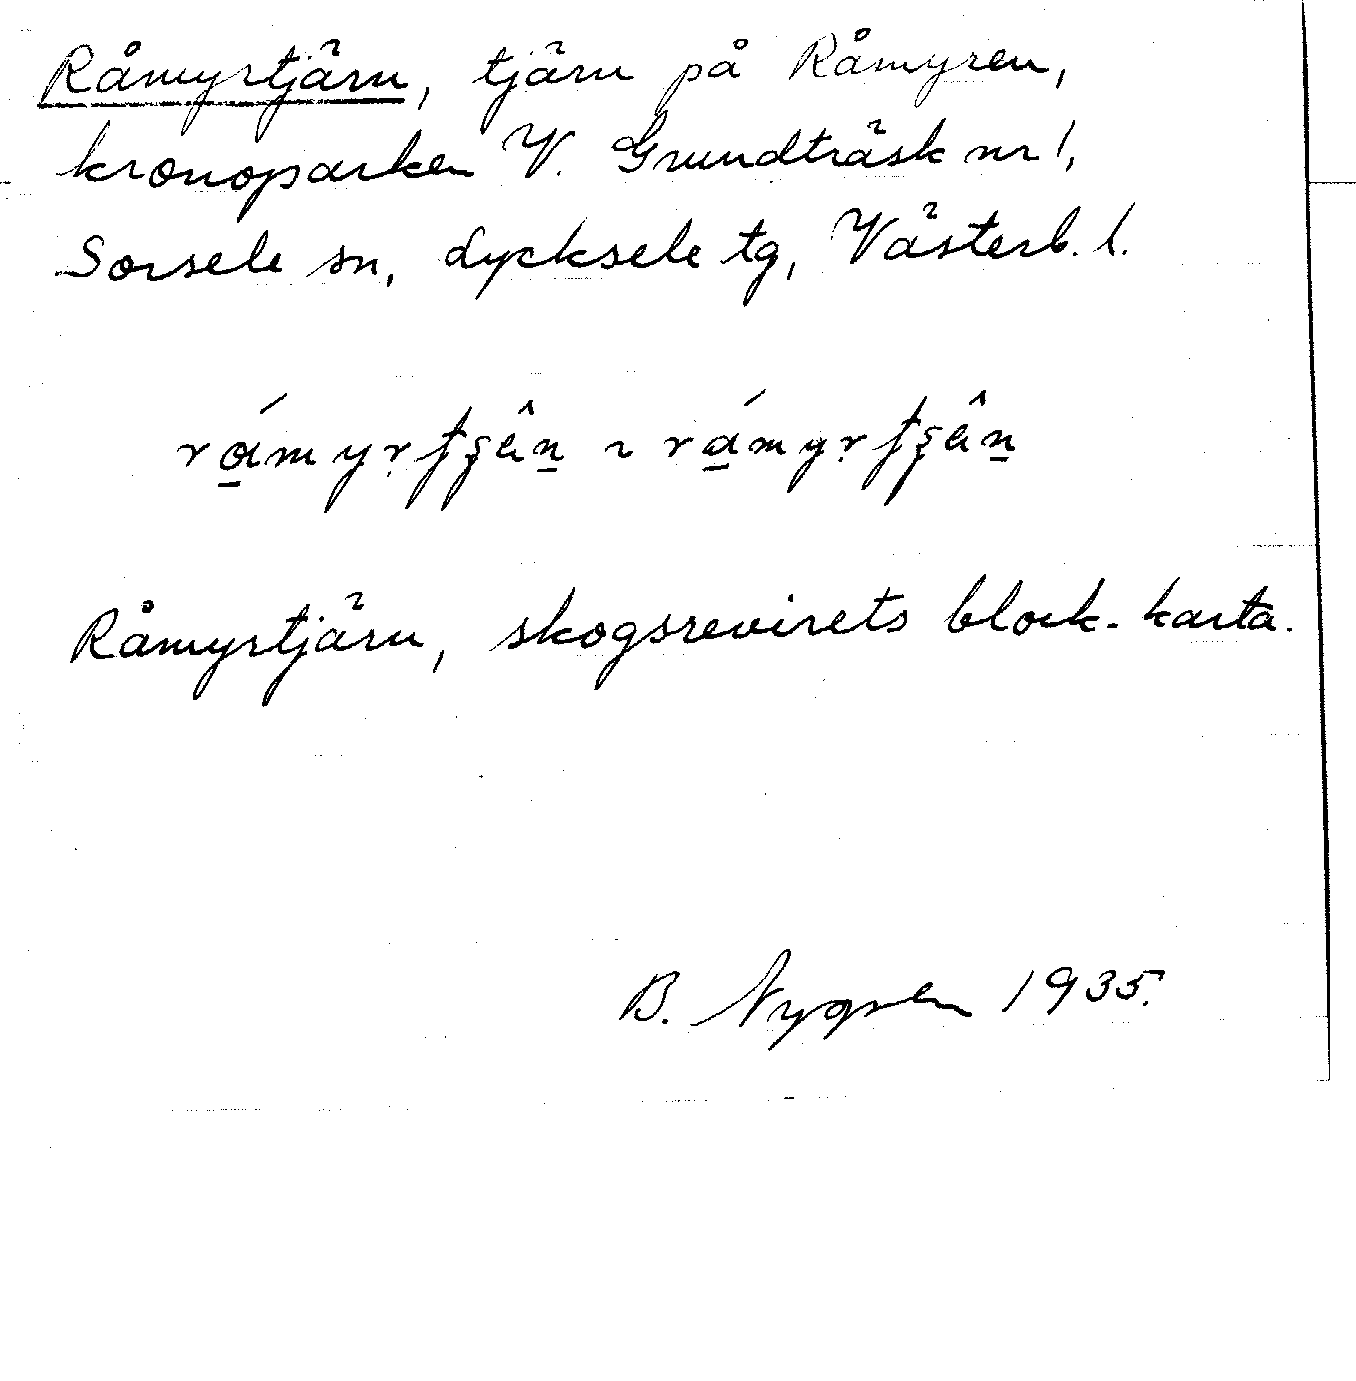 Råmyrtjärn, tjärn på Råmyren,
kronoparken V. Grundträsk nr 1,
Sorsele sn, Lycksele tg, Västerb. l.
Råmyrtjärn, skogsrevirets block-karta.
B. Nygren 1935.